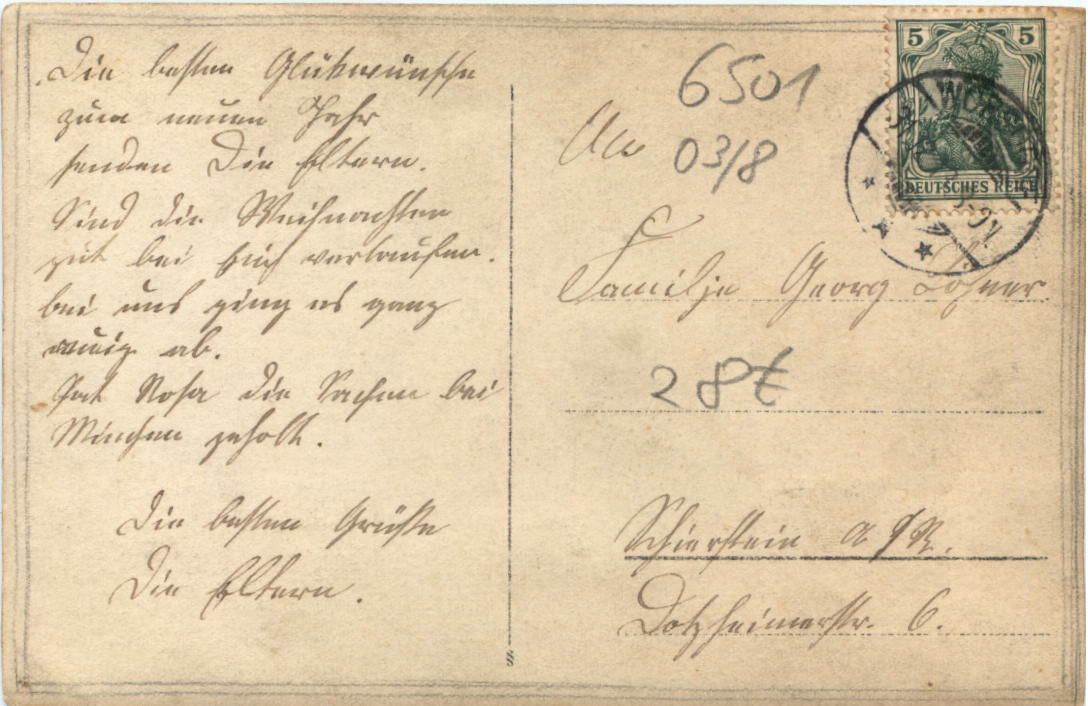 Die besten Glükwünsche
zum neuen Jahr
senden Die Eltern.
Sind die Weihnachten
gut bei Euch verlaufen.
bei uns ging es ganz
ruig ab.
Hat Rosa die Sachen bei
Minchen geholt.
Die besten Grüße
Die Eltern.
6501
An 03/8
Familje Georg Löhner
28€
Schierstein a/R.
Dotzheimerstr. 6.
5 5
DEUTSCHES REICH